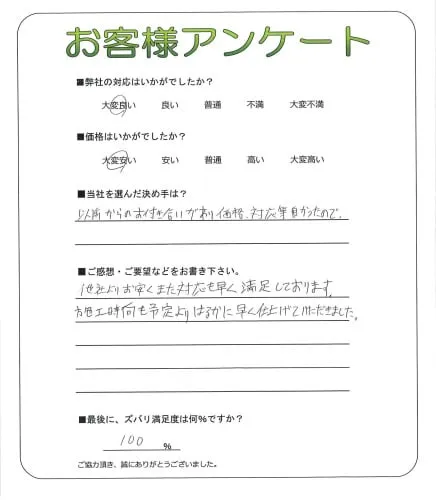 お客様アンケート
■弊社の対応はいかがでしたか？
大変良い 良い 普通 不満 大変不満
■価格はいかがでしたか？
大変安い 安い 普通 高い 大変高い
■当社を選んだ決め手は？
以前からのお付き合いがあり価格、対応等良かったので。
■ご感想・ご要望などをお書き下さい。
他社よりお安くまた対応も早く満足しております。
施工時間も予定よりはるかに早く仕上げて頂だきました。
■最後に、ズバリ満足度は何%ですか？
100 %
ご協力頂き、誠にありがとうございました。